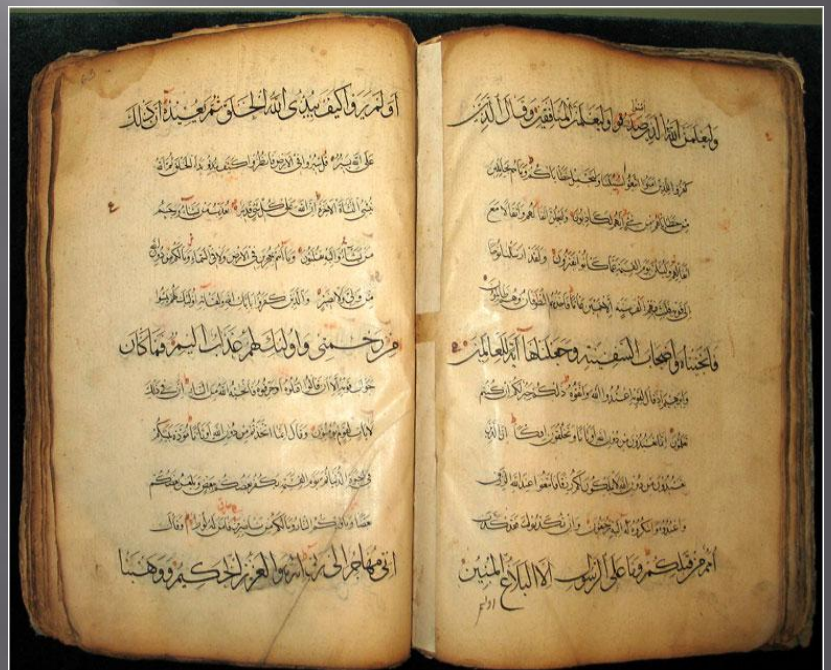 وليعلمن الله الذين صدقوا وليعلمن المنافقين وقال الذين
امنوا
كفروا للذين امنوا اتبعوا سبيلنا ولنحمل خطاياكم وما هم بحاملين
من خطاياهم من شئ انهم لكاذبون وليحملن اثقالهم واثقالا مع
اثقالهم وليسئلن يوم القيمة عما كانوا يفترون ولقد ارسلنا نوحا
الى قومه فلبث فيهم الف سنة الا خمسين عاما فاخذهم الطوفان وهم ظالمون
فانجيناه واصحاب السفينة وجعلناها آية للعالمين
وابرهيم اذ قال لقومه اعبدوا الله واتقوه ذلكم خير لكم ان كنتم
تعلمون انما تعبدون من دون الله اوثانا وتخلقون افكا ان الذين
تعبدون من دون الله لا يملكون لكم رزقا فابتغوا عند الله الرزق
واعبدوه واشكروا له اليه ترجعون وان تكذبوا فقد كذب
امم من قبلكم وما على الرسول الا البلاغ المبين
اولم
اولم يروا كيف يبدئ الله الخلق ثم يعيده ان ذلك
على الله يسير قل سيروا في الارض فانظروا كيف بدا الخلق ثم الله
ينشئ النشأة الاخرة ان الله على كل شئ قدير يعذب من يشاء ويرحم
من يشاء واليه تقلبون وما انتم بمعجزين في الارض ولا في السماء وما لكم من دون الله
من ولي ولا نصير والذين كفروا بايات الله ولقائه اولئك يئسوا
من رحمتي واولئك لهم عذاب اليم فما كان
جواب قومه الا ان قالوا اقتلوه او حرقوه فانجيه الله من النار ان في ذلك
لايات لقوم يؤمنون وقال انما اتخذتم من دون الله اوثانا مودة بينكم
في الحيوة الدنيا ثم يوم القيمة يكفر بعضكم ببعض ويلعن بعضكم
بعضا وماويكم النار وما لكم من ناصرين فامن له لوط وقال
انى مهاجر الى ربي انه هو العزيز الحكيم ووهبنا